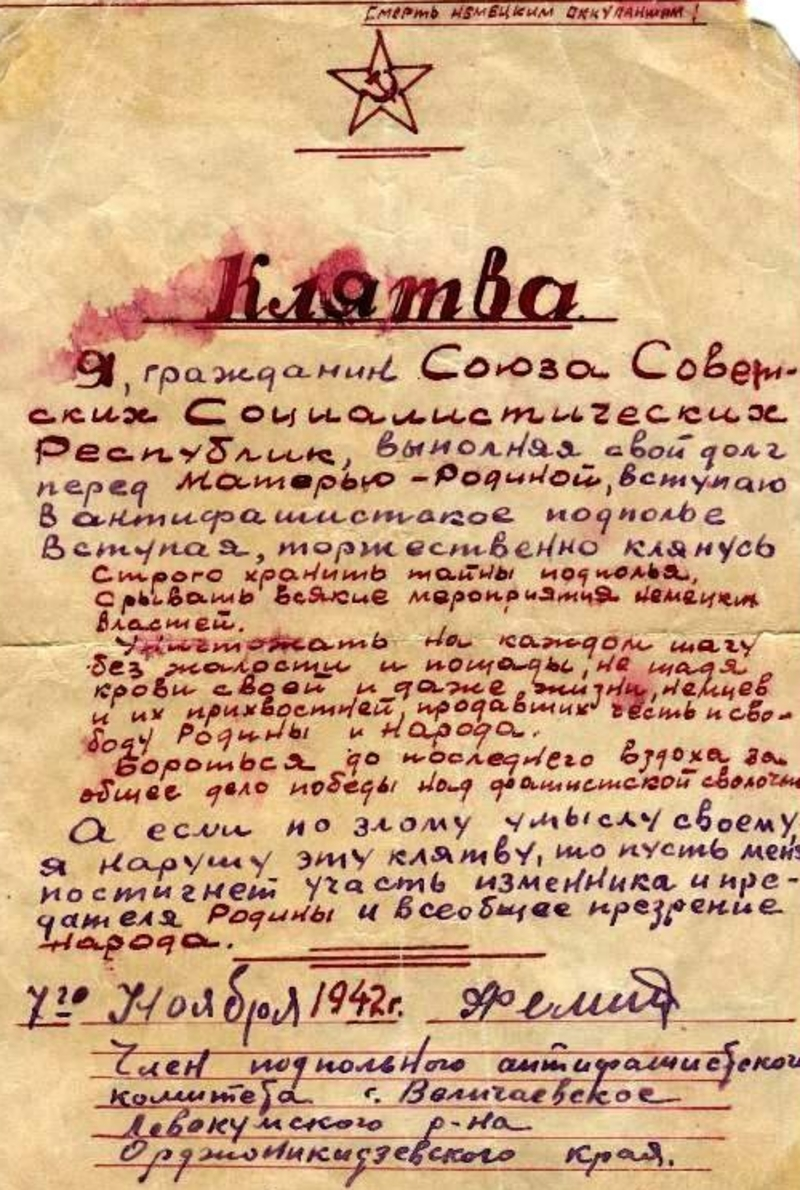 Смерть немецким оккупантам!
Клятва
Я, гражданин Союза Совет-
ских Социалистических
Республик, выполняя свой долг
перед Матерью-Родиной, вступаю
в антифашистакое подполье
Вступая, торжественно клянусь
Строго хранить тайны подполья,
Срывать всякие мероприятия немецких
властей.
Уничтожать на каждом шагу
без жалости и пощады, не щадя
крови своей и даже жизни, немцев
и их прихвостней, продавших честь и сво-
боду Родины и Народа.
Бороться до последнего вздоха за
общее дело победы над фашистской сволочью
А если по злому умыслу своему,
я нарушу эту клятву, то пусть меня
постигнет участь изменника и пре-
дателя Родины и всеобщее презрение
народа.
7го Ноября 1942г.
Член подпольного антифашистского
комитета г. Величаевское
Левокумского р-на
Орджоникидзевского края.